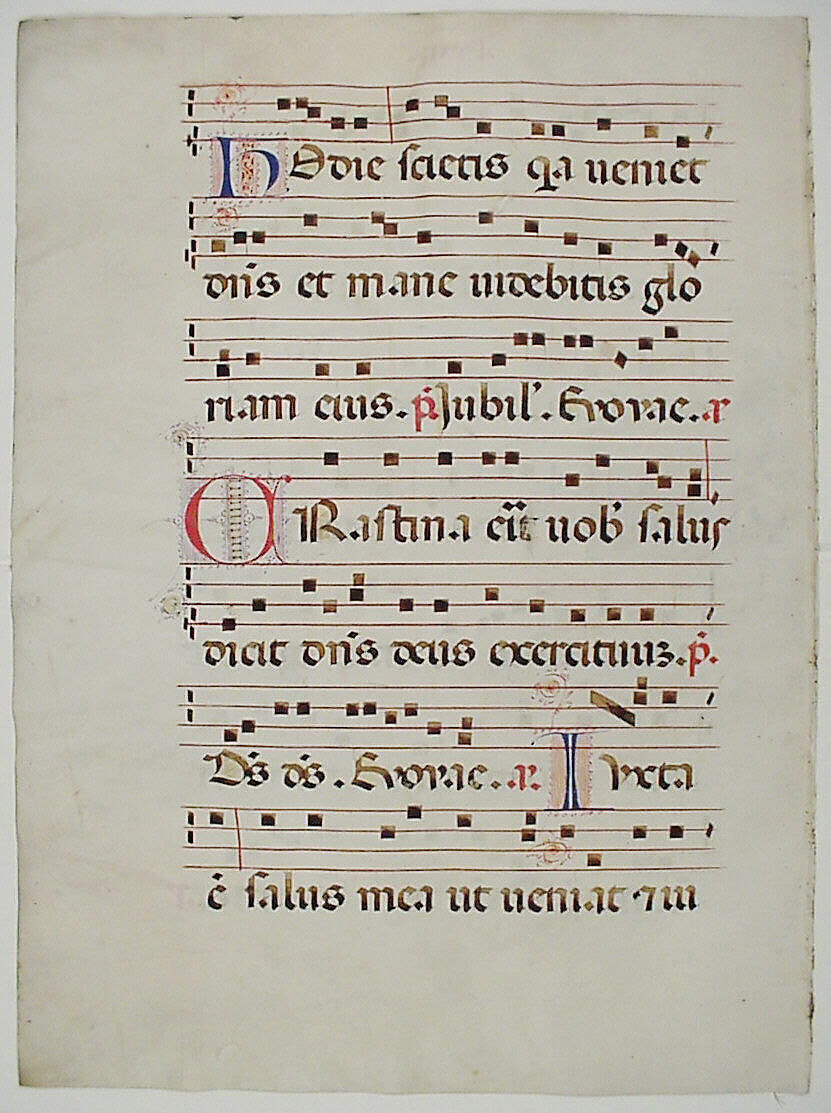 HOdie scietis qa ueniet
dn̄s et mane uidebitis glo
riam eius. p̄. Jubil'. Euouae. a.
CRastina erit uob' salus
dicit dn̄s deus exercituuꝫ. p̄.
Ds̄ ds̄. Euouae. a. Iuxta
ē salus mea ut ueniat ⁊ iu